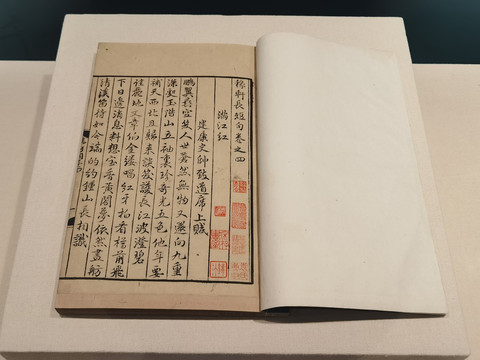 稼軒長短句卷之四
滿江紅
建康史帥致道席上賦
鵬翼垂空笑人世蒼然無物又還向九重
深處玉階山立袖裏珍奇光五色他年要
補天西北且歸來談笑護長江波澄碧
佳麗地文章伯金縷唱紅牙拍看樽前飛
下日邊消息料想寶香黃閣夢依然畫舫
清溪笛待如今端的約鍾山長相識